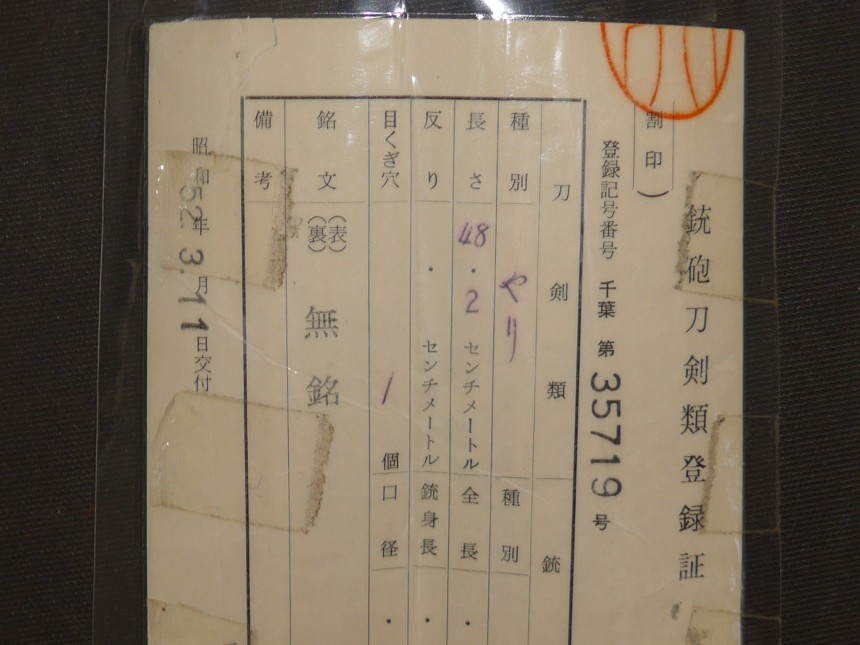 銃砲刀剣類登録証
(割印)
登録記号番号 千葉 第 35719 号
刀剣類 銃
種別 やり 種別
長さ 48.2 センチメートル 全長 ・
反り ・ センチメートル 銃身長 ・
目くぎ穴 1 個 口径 ・
銘文 (表) (裏) 無銘
備考
昭和52年3月11日交付